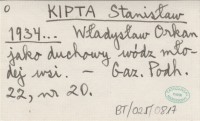 0
KIPTA Stanisław
1934... Władysław Orkan
jako duchowy wódz mło-
dej wsi. - Gaz. Podh.
22, nr 20.
BT/021/0817